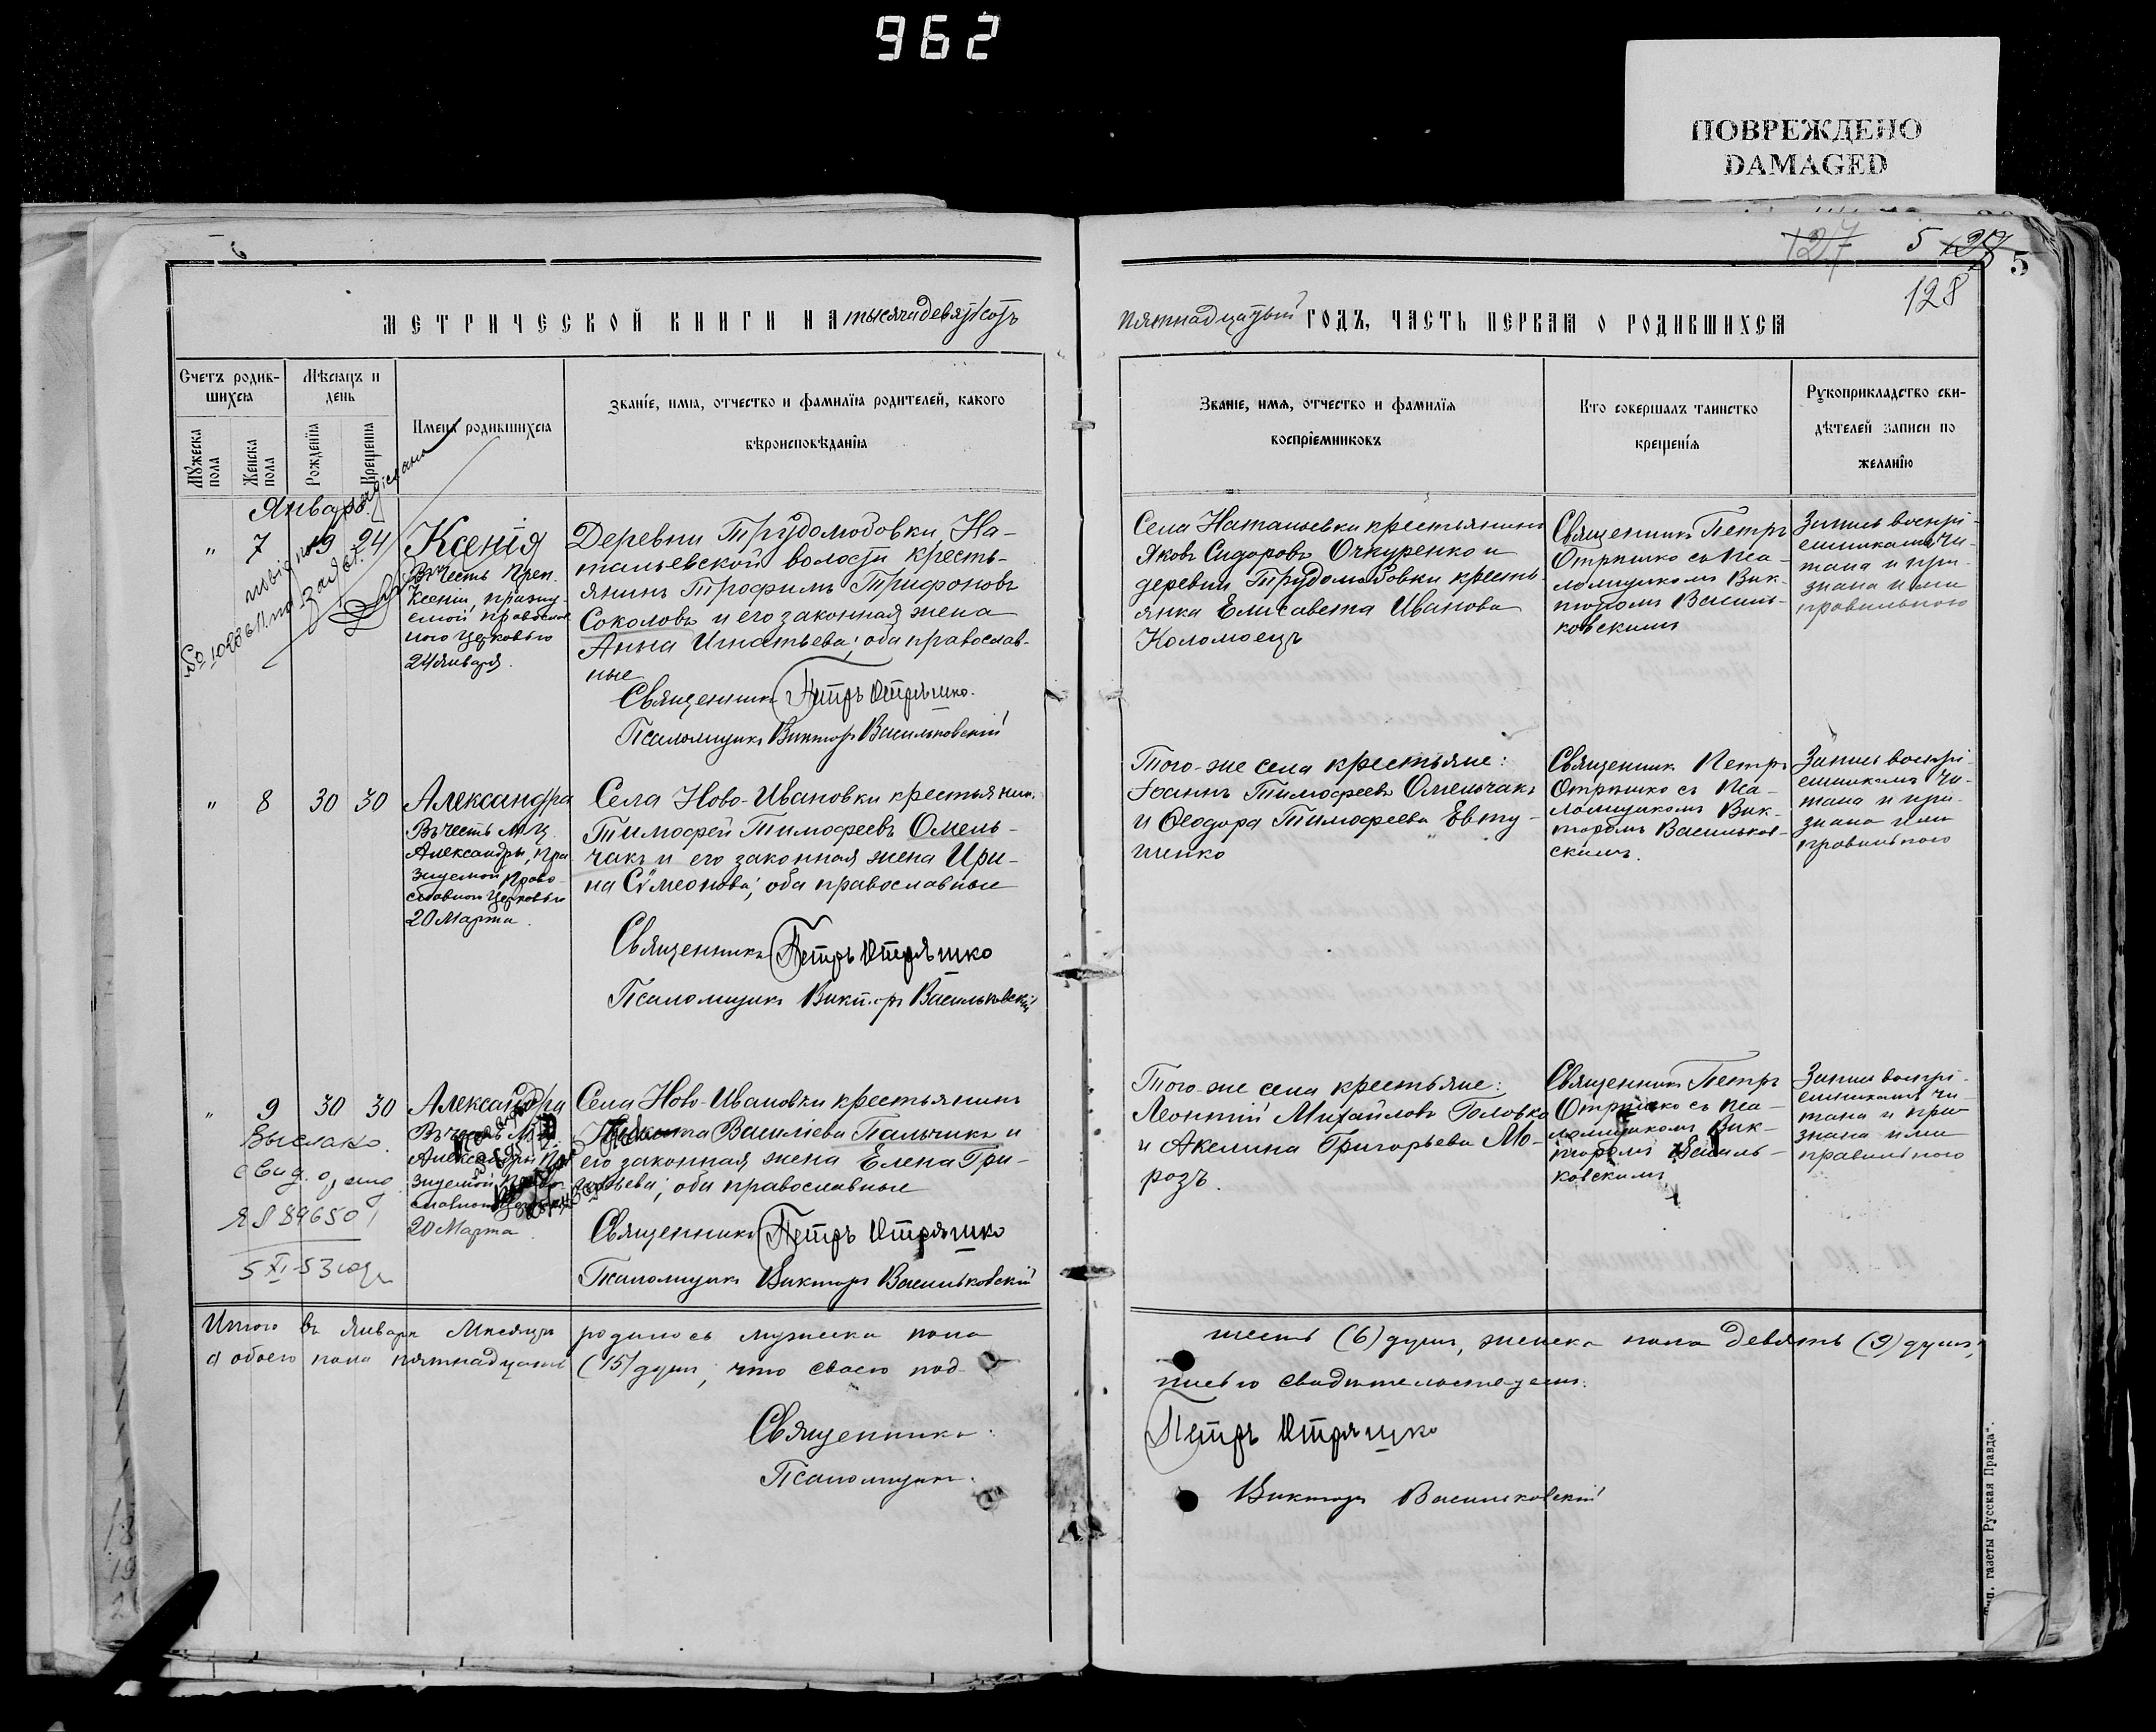 962
ПОВРЕЖДЕНО
DAMAGED
6
127 5 127 5
128
МЕТРИЧЕСКОЙ КНИГИ НА тысяча девятьсотъ
пятнадцатый ГОДЪ, ЧАСТЬ ПЕРВАЯ О РОДИВШИХСЯ
Счетъ родив-
шихся
Мѣсяцъ и
день
Мужеска
пола
Женска
пола
Рожденія
Крещенія
Имена родившихся
Званіе, имя, отчество и фамилія родителей, какого
вѣроисповѣданія
Званіе, имя, отчество и фамилія
воспріемниковъ
Кто совершалъ таинство
крещенія
Рукоприкладство сви-
дѣтелей записи по
желанію
Январь
" 7 19 24
Ксенія
Въ честь преп.
Ксеніи, праздну-
емой православ
ного Церковью
24 января.
Деревни Трудомобовки, На-
тальевской волости кресть-
янинъ Трофимъ Трифоновъ
Соколовъ и его законная жена
Анна Игнатьева; оба православ-
ные
Священникъ Петръ Отряшко.
Псаломщикъ Викторъ Васильковскій
Села Натальевки крестьянинъ
Яковъ Сидоровъ Очкуренко и
деревни Трудомобовки кресть-
янка Елисавета Иванова
Коломоецъ
Священникъ Петръ
Отряшко съ Пса-
ломщикомъ Вик-
торомъ Василь-
ковскимъ
Запись воспрі-
емникамъ чи-
тана и при-
знана ими
правильною
" 8 30 30
Александра
Въ честь М-ц.
Александры, пра
зднуемой Право-
славною Церковью
20 Марта.
Села Ново-Ивановки крестьянин.
Тимофей Тимофеевъ Омель-
чакъ и его законная жена Ири-
на Сѵмеонова; оба православные
Священникъ Петръ Отряшко
Псаломщикъ Викторъ Васильковскій
Того-же села крестьяне:
Іоаннъ Тимофеевъ Омельчакъ
и Ѳеодора Тимофеева Евту-
шенко
Священникъ Петръ
Отряшко съ Пса-
ломщикомъ Вик-
торомъ Васильков-
скимъ.
Запись воспрі-
емникамъ чи-
тана и при-
знана ими
правильною
" 9 30 30
Александра
Въ честь М-ц.
Александры, пра
зднуемой Право-
славною Церковью
20 Марта.
Села Ново-Ивановки крестьянинъ
Василіевъ Пальчикъ и
его законная жена Елена Гри-
горьева; оба православные
Священникъ Петръ Отряшко
Псаломщикъ Викторъ Васильковскій
Того-же села крестьяне:
Леонтій Михайловъ Головко
и Акелина Григорьева Мо-
розъ.
Священникъ Петръ
Отряшко съ Пса-
ломщикомъ Вик-
торомъ Василь-
ковскимъ
Запись воспрі-
емникамъ чи-
тана и при-
знана ими
правильною
Выслано
свид.
5 XI-53 года
Итого въ Январѣ Мѣсяцѣ родилось мужеска пола
шесть (6) душъ, женска пола девять (9) душъ,
а обоего пола пятнадцать (15) душъ, что своею под-
писью свидѣтельствуемъ.
Священникъ: Петръ Отряшко
Псаломщикъ: Викторъ Васильковскій
Тип. газеты „Русская Правда".